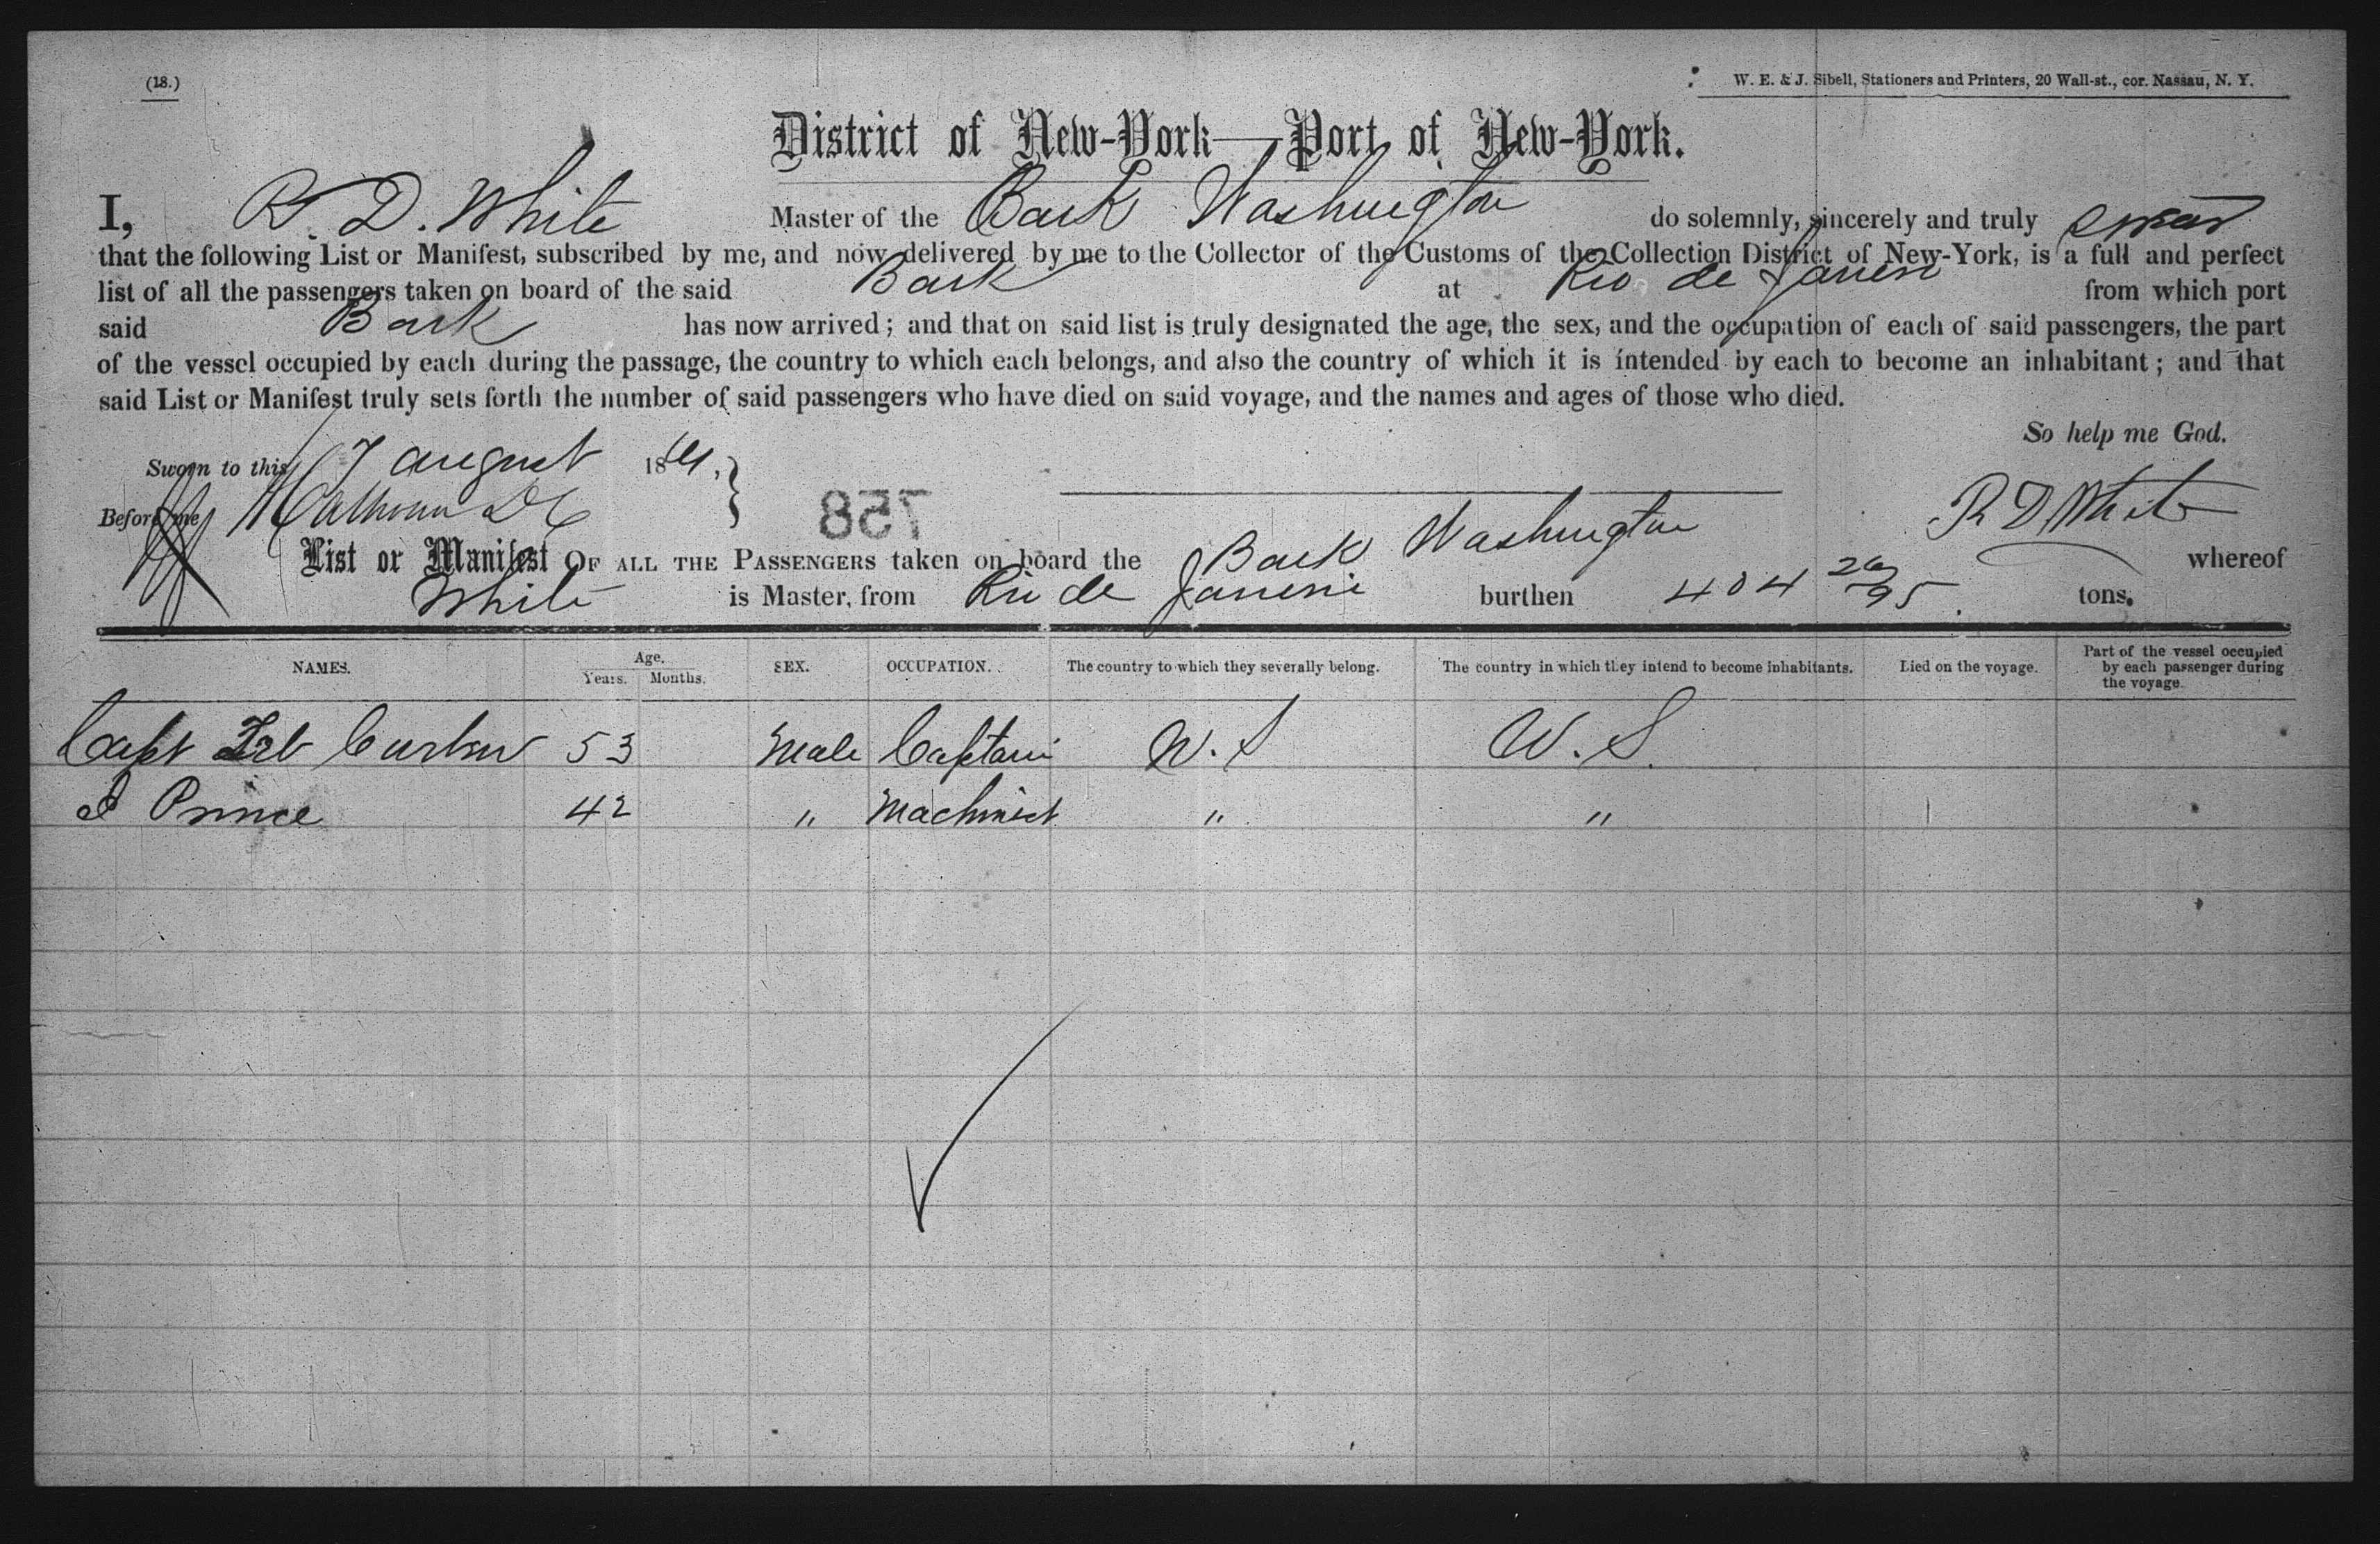 (18.)
W. E. & J. Sibell, Stationers and Printers, 20 Wall-st., cor. Nassau, N. Y.
District of New-York—Port of New-York.
I, R. D. White Master of the Bark Washington do solemnly, sincerely and truly swear
that the following List or Manifest, subscribed by me, and now delivered by me to the Collector of the Customs of the Collection District of New-York, is a full and perfect
list of all the passengers taken on board of the said Bark at Rio de Janeiro from which port
said Bark has now arrived; and that on said list is truly designated the age, the sex, and the occupation of each of said passengers, the part
of the vessel occupied by each during the passage, the country to which each belongs, and also the country of which it is intended by each to become an inhabitant; and that
said List or Manifest truly sets forth the number of said passengers who have died on said voyage, and the names and ages of those who died.
So help me God.
Sworn to this 7 august 186
Before me Calhoun DC
758
R D White
List or Manifest OF ALL THE PASSENGERS taken on board the Bark Washington whereof
White is Master, from Rio de Janeiro burthen 404 26/95 tons.
NAMES. Age. Years. Months. SEX. OCCUPATION. The country to which they severally belong. The country in which they intend to become inhabitants. Died on the voyage. Part of the vessel occupied by each passenger during the voyage.
Capt 53 Male Captain U. S U. S.
Prince 42 " Machinist " "